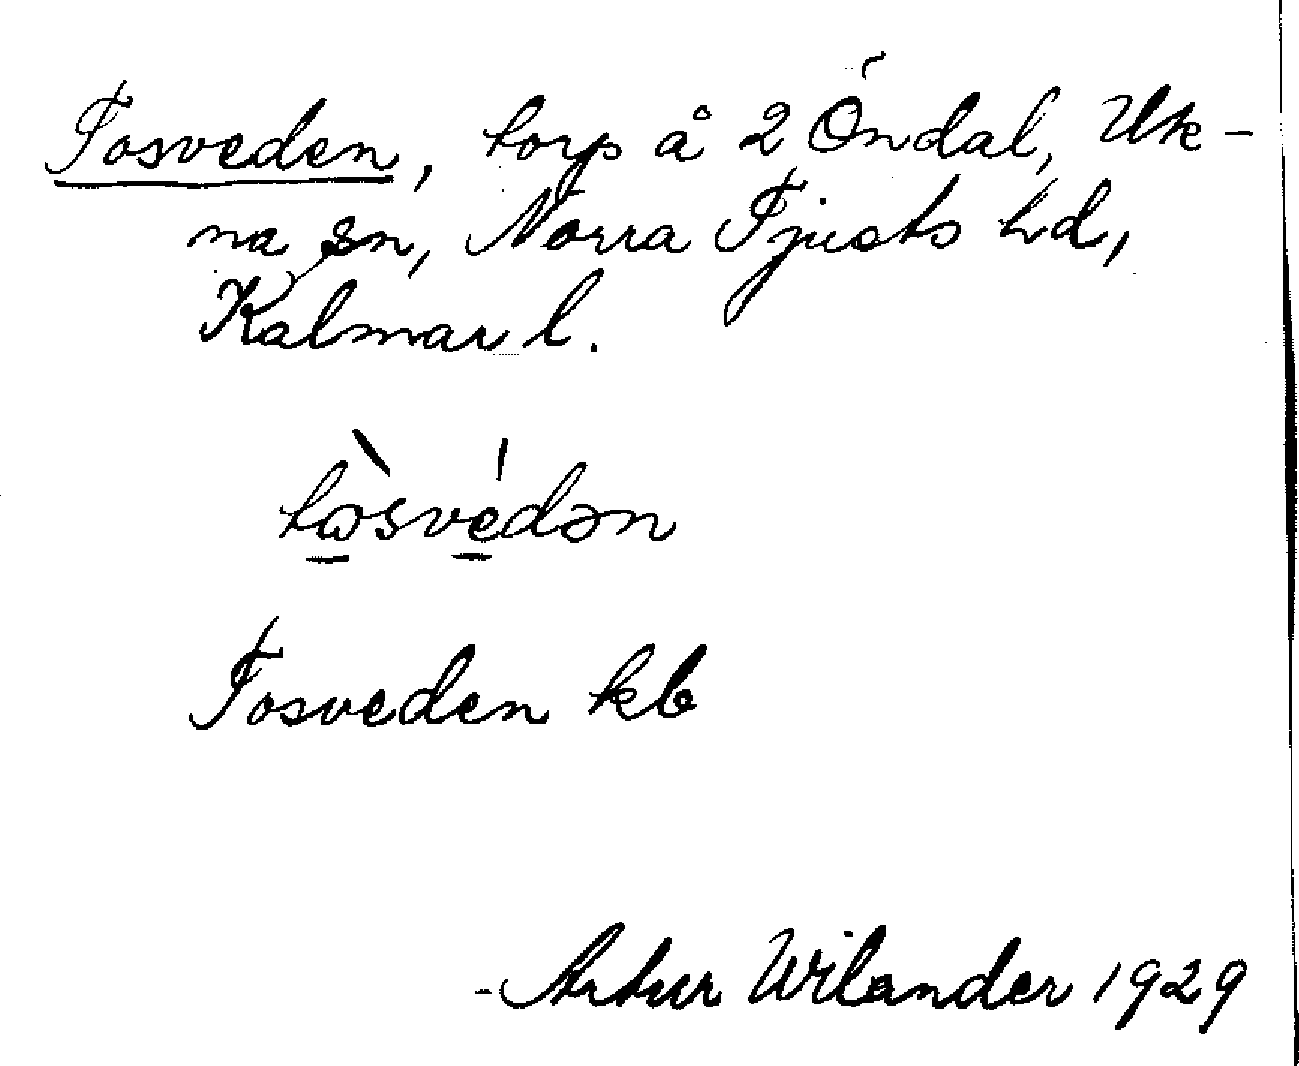 Tosveden, torp å 2 Öndal, Uk-
na sn, Norra Tjusts hd,
Kalmar l.
tɷ̀svédən
Tosveden kb
Artur Wilander 1929